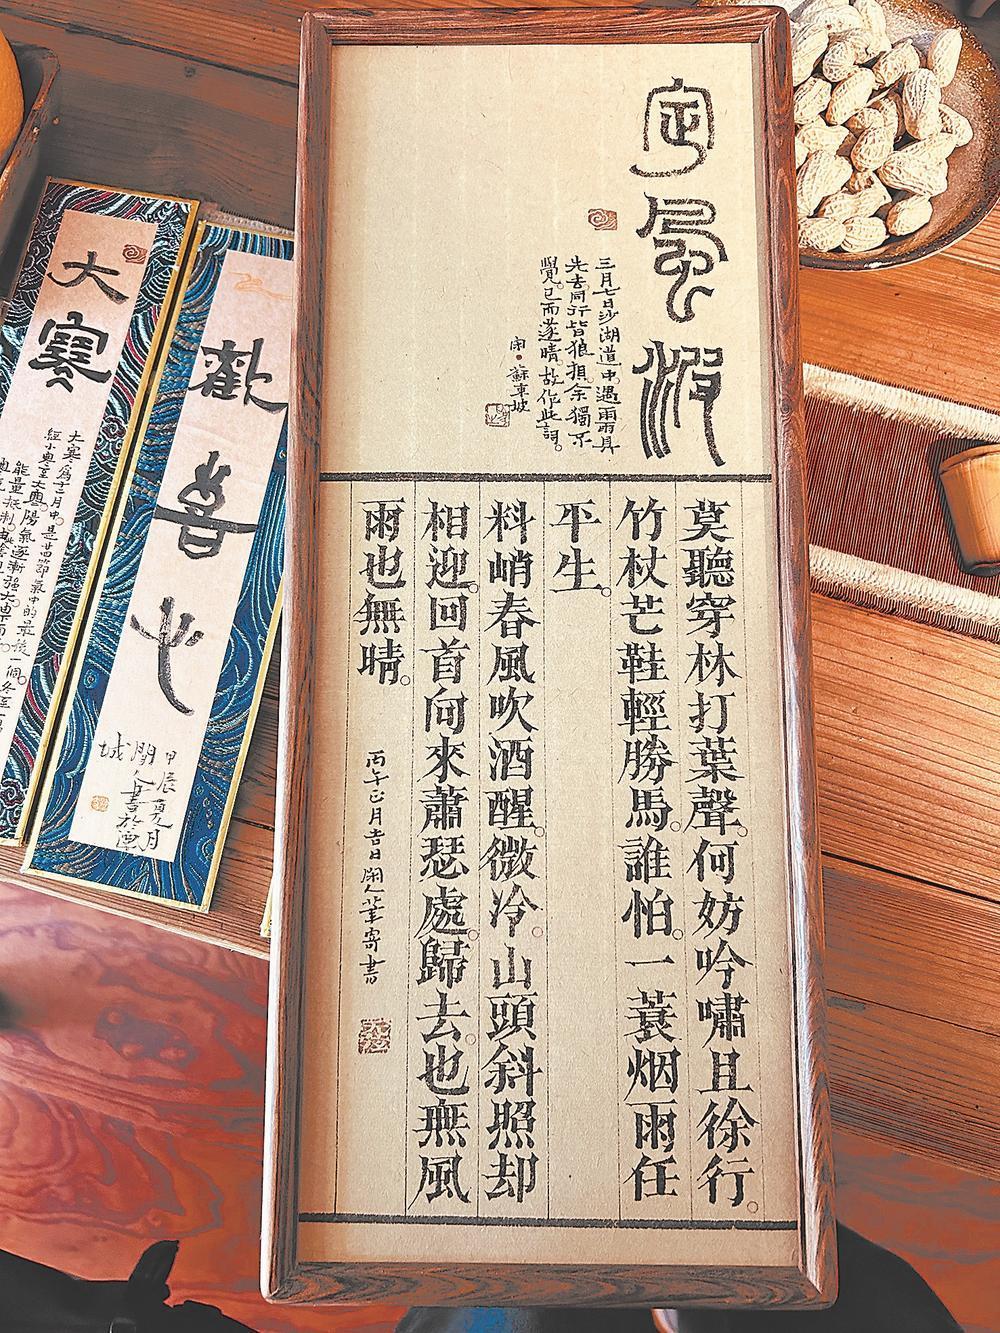 定風波
三月七日沙湖道中。遇雨雨具
先去同行皆狼狽余獨不
覺。已而遂晴故作此詞。
宋·蘇東坡
莫聽穿林打葉聲。何妨吟嘯且徐行。
竹杖芒鞋輕勝馬。誰怕。一蓑烟雨任
平生。
料峭春風吹酒醒。微冷。山頭斜照却
相迎。回首向來蕭瑟處。歸去。也無風
雨也無晴。
丙午正月吉日
歡喜也
甲辰夏月
大寒
大寒為十二月中。是廿四節氣中的最後一個。冬至一
經小寒至大寒陽氣逐漸強大